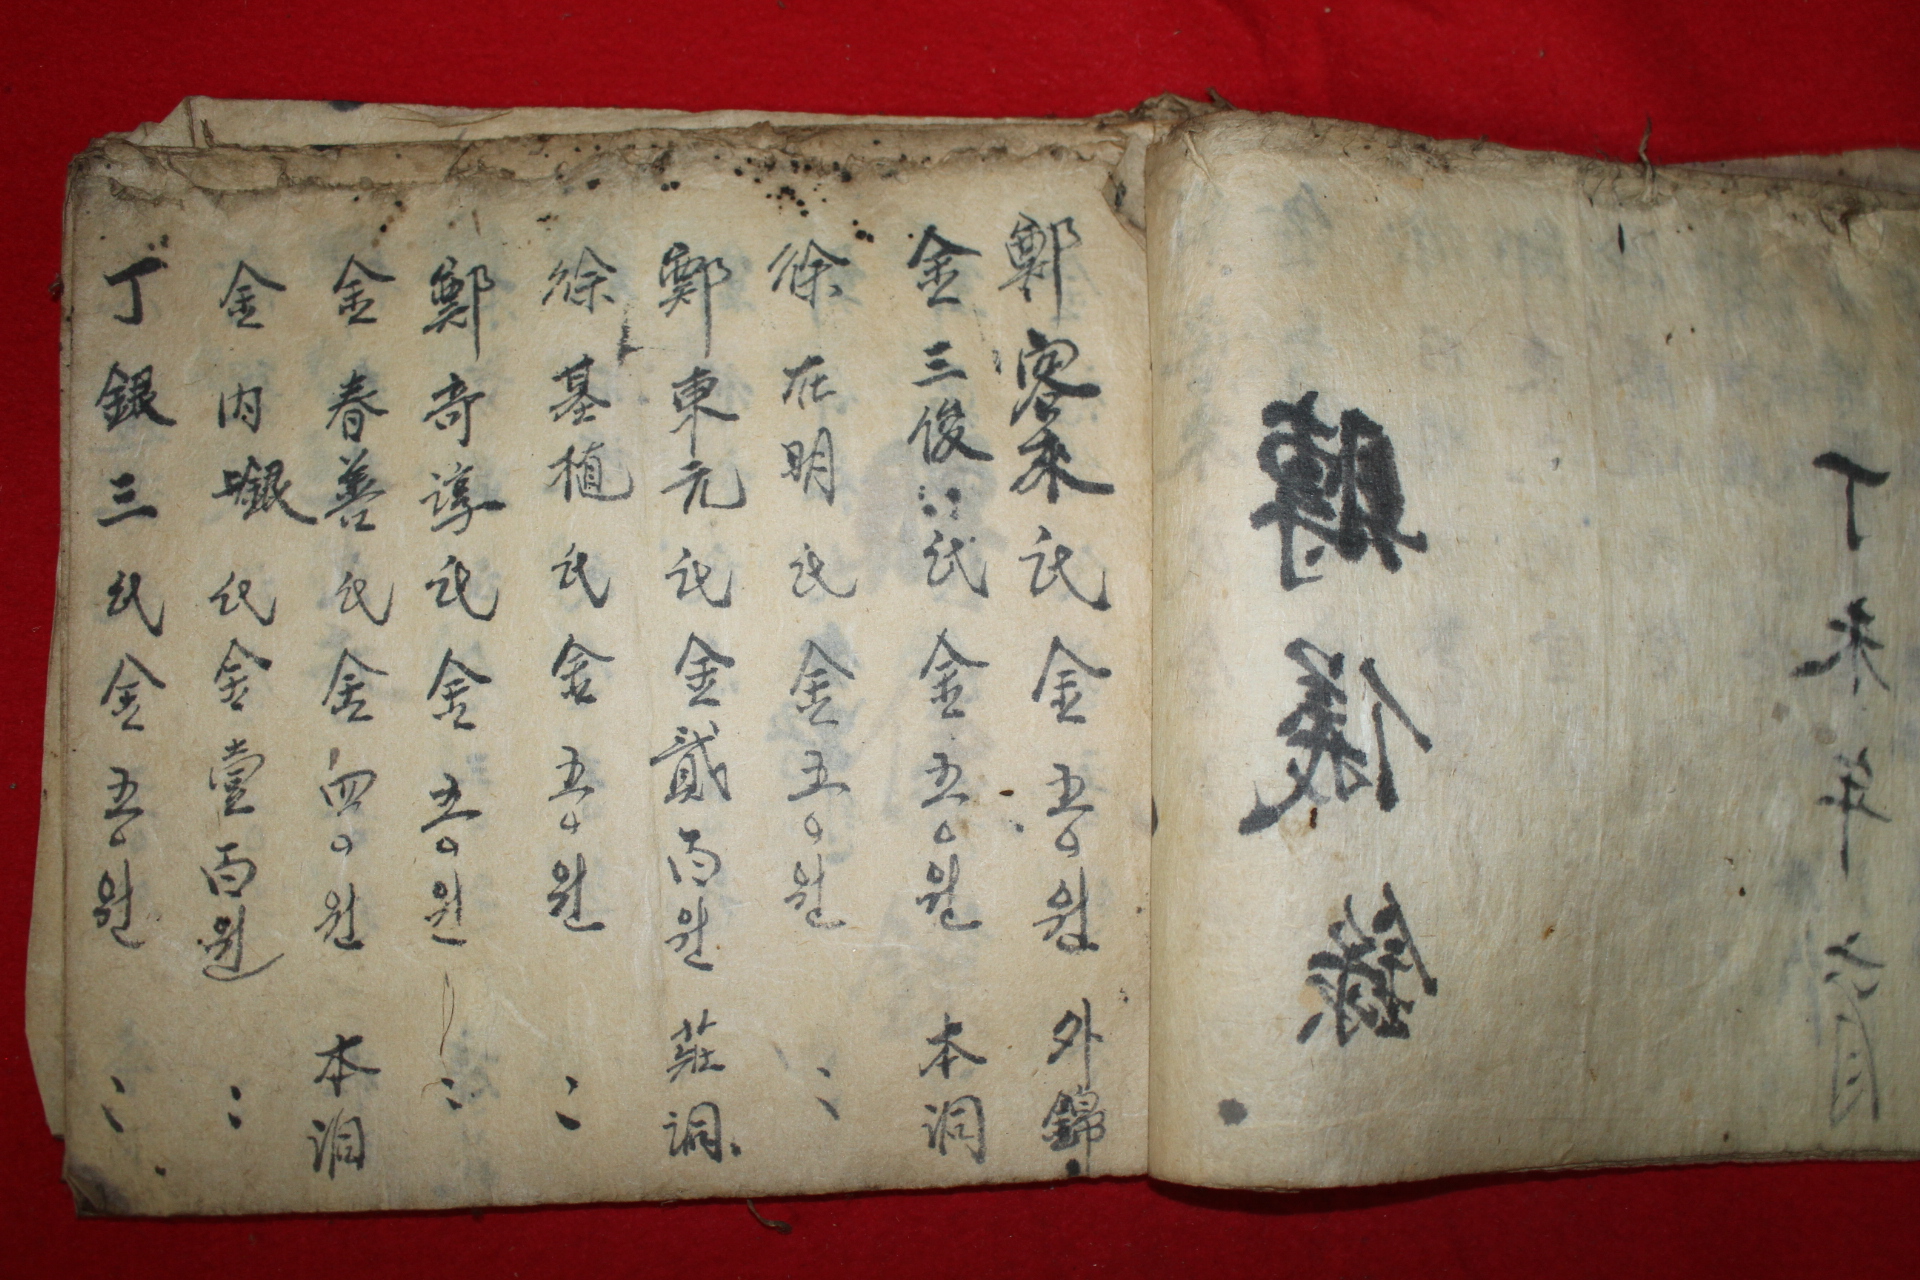 丁未年六月
賻儀錄
鄭容來氏 金五〇원 外錦
金三俊氏 金五〇원 本洞
徐在明氏 金五〇원 〃
鄭東元氏 金貳百원 莊洞
徐基植氏 金五〇원 〃
鄭奇諄氏 金五〇원 〃
金春善氏 金四〇원 本洞
金內 氏 金壹百원 〃
丁銀三氏 金五〇원 〃